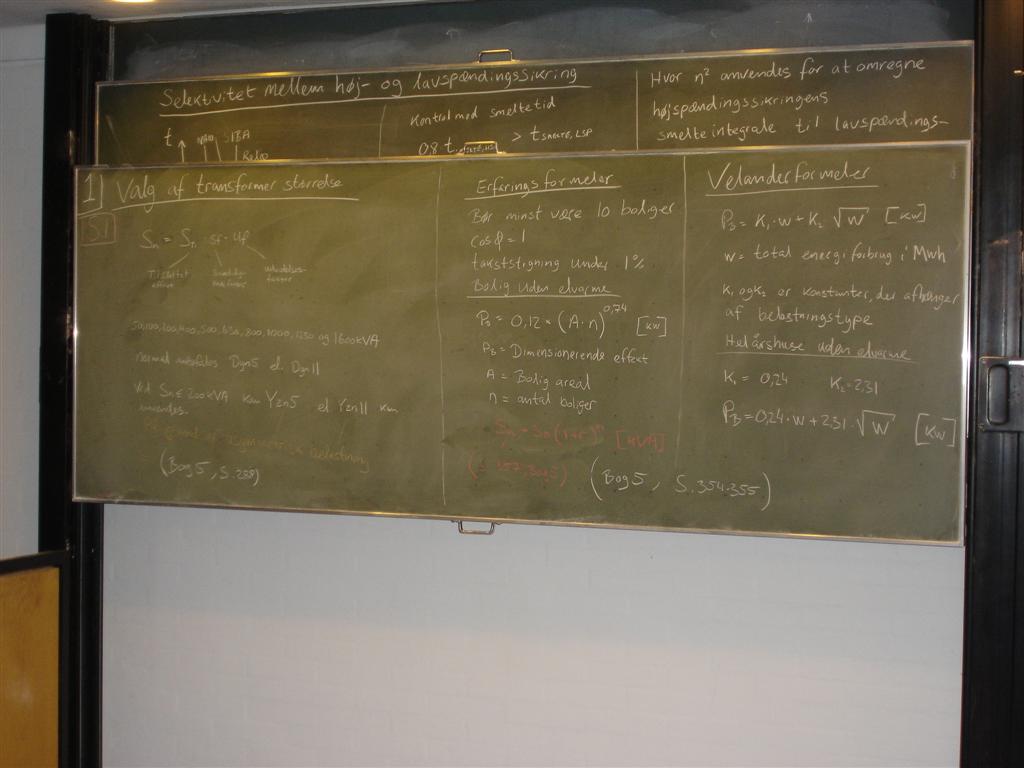 Selektvitet mellem høj- og lavspændingssikring
t
Kontrol med smeltetid
0,8 t > t SMELTE, LSP
Hvor n² anvendes for at omregne
højspændingssikringens
smelteintegrale til lavspændings-
1] Valg af transformer størrelse
S.1
Sn = Sn · sf · Uf
Tilsluttet effekt
50,100,200,400,500,630,800,1000,1250 og 1600kVA
normal anbefales Dyn5 el. Dyn11
Ved Sn ≤ 200kVA kan Yzn5 el Yzn11 kun
anvendes.
På grund af symmetrisk belastning
(Bog 5, S. 238)
Erfaringsformelar
Bør minst være 10 boliger
cosφ = 1
takststigning under 1%
Bolig uden elvarme
PB = 0,12 · (A · n)^0,74 [kW]
PB = Dimensionerende effekt
A = Bolig areal
n = antal boliger
(S. 357, Bog 5)
(Bog 5, S. 354-355)
Velanderformeler
PB = K₁ · w + K₂ · √W [kW]
w = total energiforbrug i Mwh
K₁ og K₂ er konstanter, der afhænger
af belastningstype
Helårshuse uden elvarme
K₁ = 0,24 K₂ = 2,31
PB = 0,24 · w + 2,31 · √W [kW]